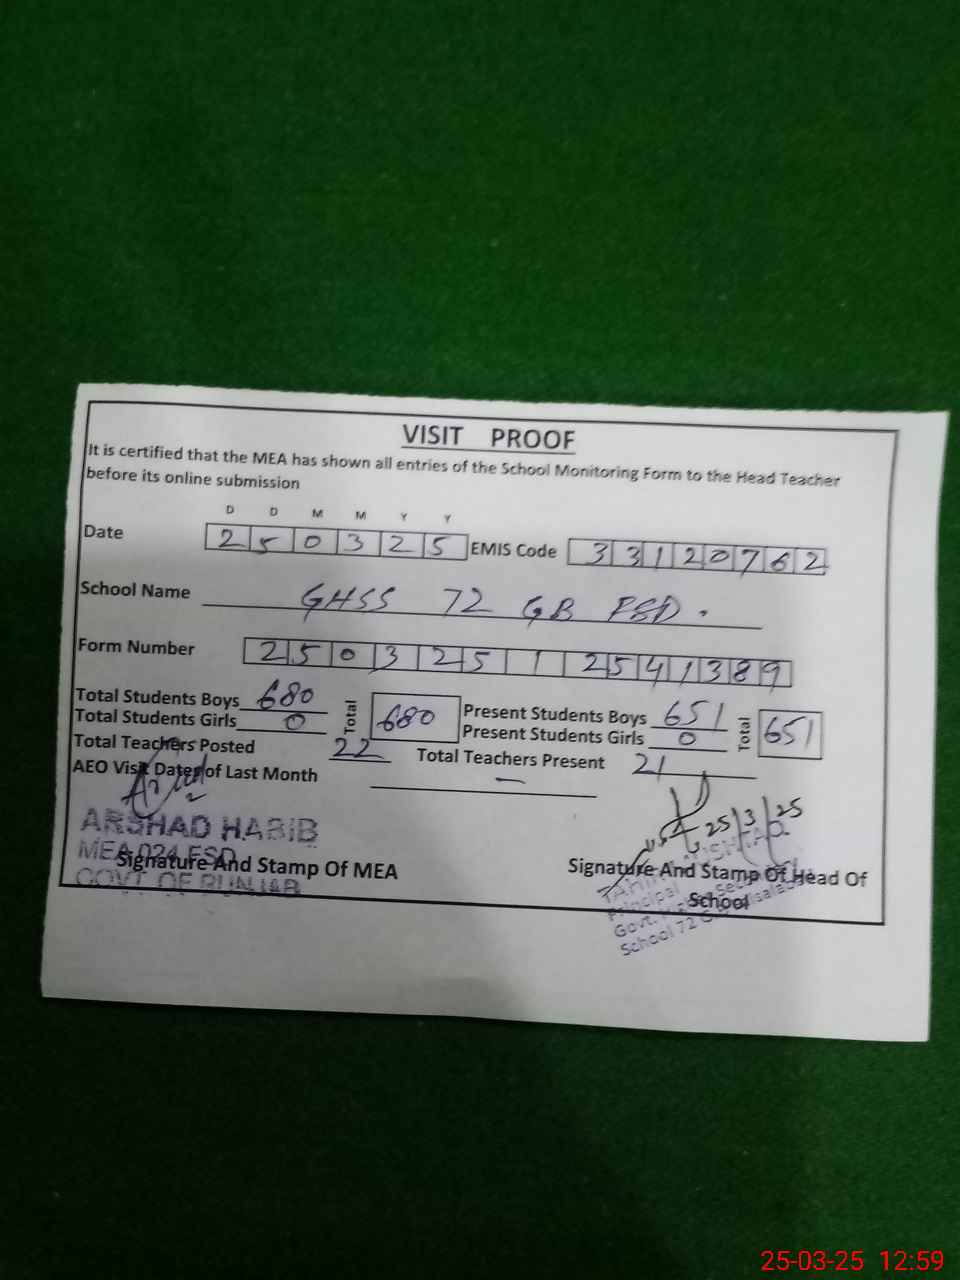 VISIT PROOF
It is certified that the MEA has shown all entries of the School Monitoring Form to the Head Teacher
before its online submission
D D M M Y Y
Date 2 5 0 3 2 5 EMIS Code 3 3 1 2 0 7 6 2
School Name GHSS 72 GB FSD.
Form Number 2 5 0 3 2 5 1 2 5 4 1 3 8 9
Total Students Boys 680 Total 680 Present Students Boys 651 Total 651
Total Students Girls 0 Present Students Girls 0
Total Teachers Posted 22 Total Teachers Present 21
AEO Visit Dates of Last Month —
25/3/25
ARSHAD HABIB
MEA 024 FSD
Signature And Stamp Of MEA
GOVT OF PUNJAB
Signature And Stamp Of Head Of
School
Principal
Govt.
School 72
25-03-25 12:59